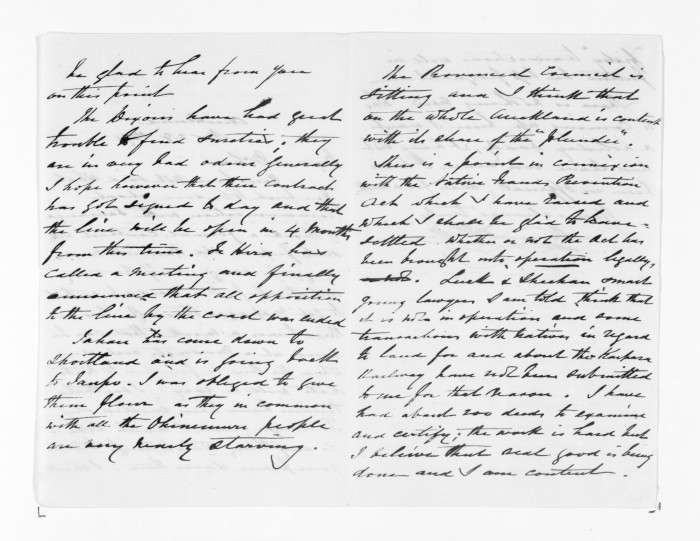 be glad to hear from you
on this point
The Dixons have had great
trouble to find sureties, they
are in very bad odour generally
I hope however that their contract
has got signed to day and that
the line will be open in 4 months
from this time. Te Hira has
called a meeting and finally
announced that all opposition
to the line by the coast was ended
has come down to
Shortland and is going back
to Taupo. I was obliged to give
them flour as they in common
with all the Ohinemuri people
are very nearly starving.
The Provincial Council is
sitting and I think that
on the whole Auckland is content
with its share of the "plunder".
There is a point in connexion
with the Native Frauds Prevention
Act which I have raised and
which I should be glad to have
settled whether or not the Act has
been brought into operation legally,
or not. Lusk & Sheehan smart
young lawyers I am told think that
it is not in operation and some
transactions with Natives in regard
to land for and about the Kaipara
Railway have not been submitted
to me for that reason. I have
had about 200 deeds to examine
and certify; the work is hard but
I believe that real good is being
done and I am content.